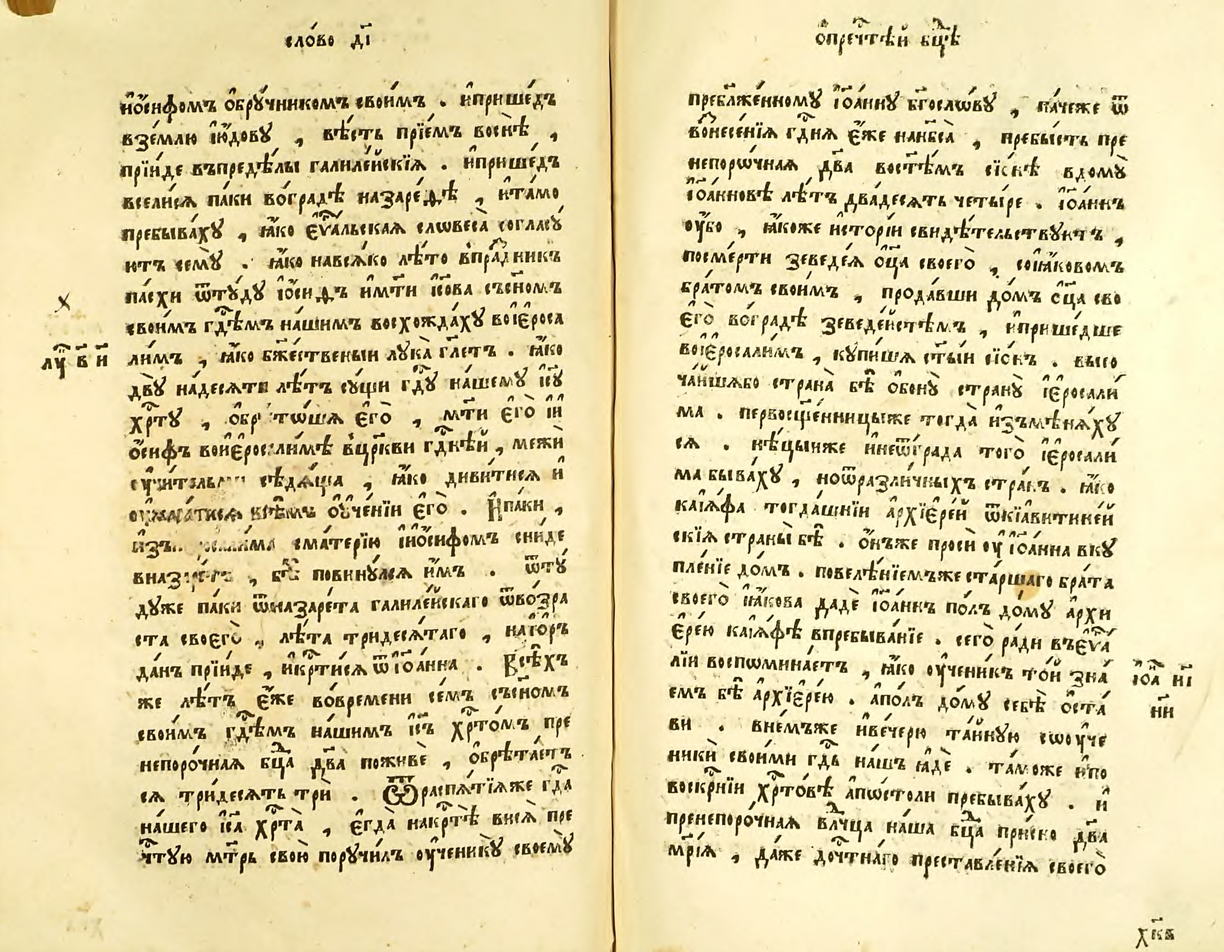 сло́во д҃і
іѡ҆́сифомъ ѻ҆брꙋ́чникомъ свои́мъ . и҆прише́дъ
взе́млю і҆ю́довꙋ , вѣ́сть прїе́мъ воснѣ̀ ,
прїи́де въпредѣ́лы галиле́йскїѧ . и҆прише́дъ
всели́сѧ па́ки вогра́дѣ назаре́дѣ , и҆та́мо
пребыва́хꙋ , ꙗ҆́ко є҆ѵⷢ҇альскаѧ словеса̀ согласꙋ
итъ семꙋ̀ . ꙗ҆́ко навсѧ́ко лѣ́то впра́здникъ
па́схи ѿтꙋ́дꙋ і҆ѡ́сифъ и҆мт҃и і҆с҃ова съсн҃омъ
свои́мъ гдⷭ҇емъ на́шимъ восхожда́хꙋ воі҆ероса
ли́мъ , ꙗ҆́ко бж҃ественыи лꙋка̀ гл҃етъ . ꙗ҆́ко
лꙋⷦ҇ в҃ и҃
двꙋ̀ на́десѧти лѣ́тъ сꙋ́щи гдⷭ҇ꙋ на́шемꙋ і҆с҃ꙋ
хрⷭ҇тꙋ̀ , ѻ҆брѣто́шѧ є҆гѡ̀ , мт҃и є҆гѡ̀ и҆ і҆
ѡ҆́сифъ воі҆еросали́мѣ вцр҃кви гдⷭ҇нѣй , межѝ
ᲂу҆чи́тельми сѣдѧ́ща , ꙗ҆́ко диви́тисѧ и҆
ᲂу҆жаса́тисѧ всѣ́мъ ѻ҆ᲂуче́нїи є҆гѡ̀ . И҆па́ки ,
сма́терїю и҆і҆ѡ́сифомъ сни́де
вназаре́тъ , бѣ̀ повинꙋ́ѧсѧ и҆мъ . ѿтꙋ́
дꙋже па́ки ѿназаре́та галиле́йскаго ѿво́зра
ста своегѡ̀ , лѣ́та тридесѧ́таго , наі҆ѡ́ръ
да́нъ прїи́де , и҆крⷭ҇ти́сѧ ѿі҆ѡа́нна . Всѣ́хъ
же лѣ́тъ є҆́же во́времени се́мъ съсн҃омъ
свои́мъ гдⷭ҇емъ на́шимъ і҆с҃ъ хрⷭ҇то́мъ пре
непоро́чнаѧ бц҃а дв҃а поживѐ , ѻ҆брѣта́етъ
сѧ три́десѧть трѝ . Ѿраспѧ́тїѧже гдⷭ҇а
на́шего і҆с҃а хрⷭ҇та̀ , є҆гда̀ накрⷭ҇тѣ̀ висѧ̀ пре
чⷭ҇тꙋю мт҃рь свою̀ порꙋчи́лъ ᲂу҆ченикꙋ̀ своемꙋ̀
ѻ҆пречⷭ҇тѣй бц҃ѣ
пребл҃же́нномꙋ і҆ѡа́ннꙋ бг҃осло́вꙋ , па́чеже ѿ
вознесе́нїѧ гдⷭ҇нѧ є҆́же нанб҃са̀ , пребы́сть пре
непоро́чнаѧ дв҃а востѣ́мъ сїѡ́нѣ вдомꙋ̀
і҆ѡа́нновѣ лѣ́тъ два́десѧть четы́ре . і҆ѡа́ннъ
ᲂу҆́бо , ꙗ҆́коже и҆сто́рїи свидѣ́тельствꙋютъ ,
посме́рти зеведе́ѧ ѻц҃а своегѡ̀ , соі҆а́ковомъ
бра́томъ свои́мъ , прода́вши до́мъ ѻц҃а сво
є҆го̀ вогра́дѣ зеведе́йстѣмъ , и҆прише́дше
воі҆еросали́мъ , кꙋпи́шѧ ст҃ы́и сїѡ́нъ . высо
ча́йшѧбо страна̀ бѣ̀ ѻ҆бонꙋ̀ странꙋ̀ і҆еросали́
ма . первосщ҃е́нницыже тогда̀ и҆зъмѣнѧ́хꙋ
сѧ . нѣ́цыиже и҆неѿгра́да того̀ і҆еросали́
ма быва́хꙋ , ноѿразли́чныхъ стра́нъ . ꙗ҆́ко
каїѧ́фа тогда́шнїи а҆рхїере́й ѿкїавити́ней
скїѧ страны̀ бѣ̀ . ѻ҆́нъже просѝ ᲂу҆ і҆ѡа́нна вкꙋ
пле́нїе до́мъ . повелѣ́нїемъже ста́ршаго бра́та
своего̀ і҆а́кова дадѐ і҆ѡа́ннъ по́лъ до́мꙋ а҆рхи
є҆ре́ю каїѧ́фѣ впребыва́нїе . сего̀ ра́ди въє҆ѵⷢ҇а́
лїи воспомина́етъ , ꙗ҆́ко ᲂу҆чени́къ то́й зна́
і҆ѡⷩ҇а и҃і
емъ бѣ̀ а҆рхїере́ю . а҆по́лъ до́мꙋ себѣ̀ ѻ҆ста́
ви . вне́мъже и҆вече́рю та́йнꙋю соᲂуче
никѝ свои́ми гдⷭ҇ь на́шъ ꙗ҆дѐ . та́може и҆по
воскрⷭ҇нїи хрⷭ҇то́вѣ а҆по́столи пребыва́хꙋ . и҆
пренепоро́чнаѧ влⷣчца на́ша бц҃а при́сно дв҃а
мр҃і́ѧ , да́же дочⷭ҇тна́го преставле́нїѧ своегѡ̀